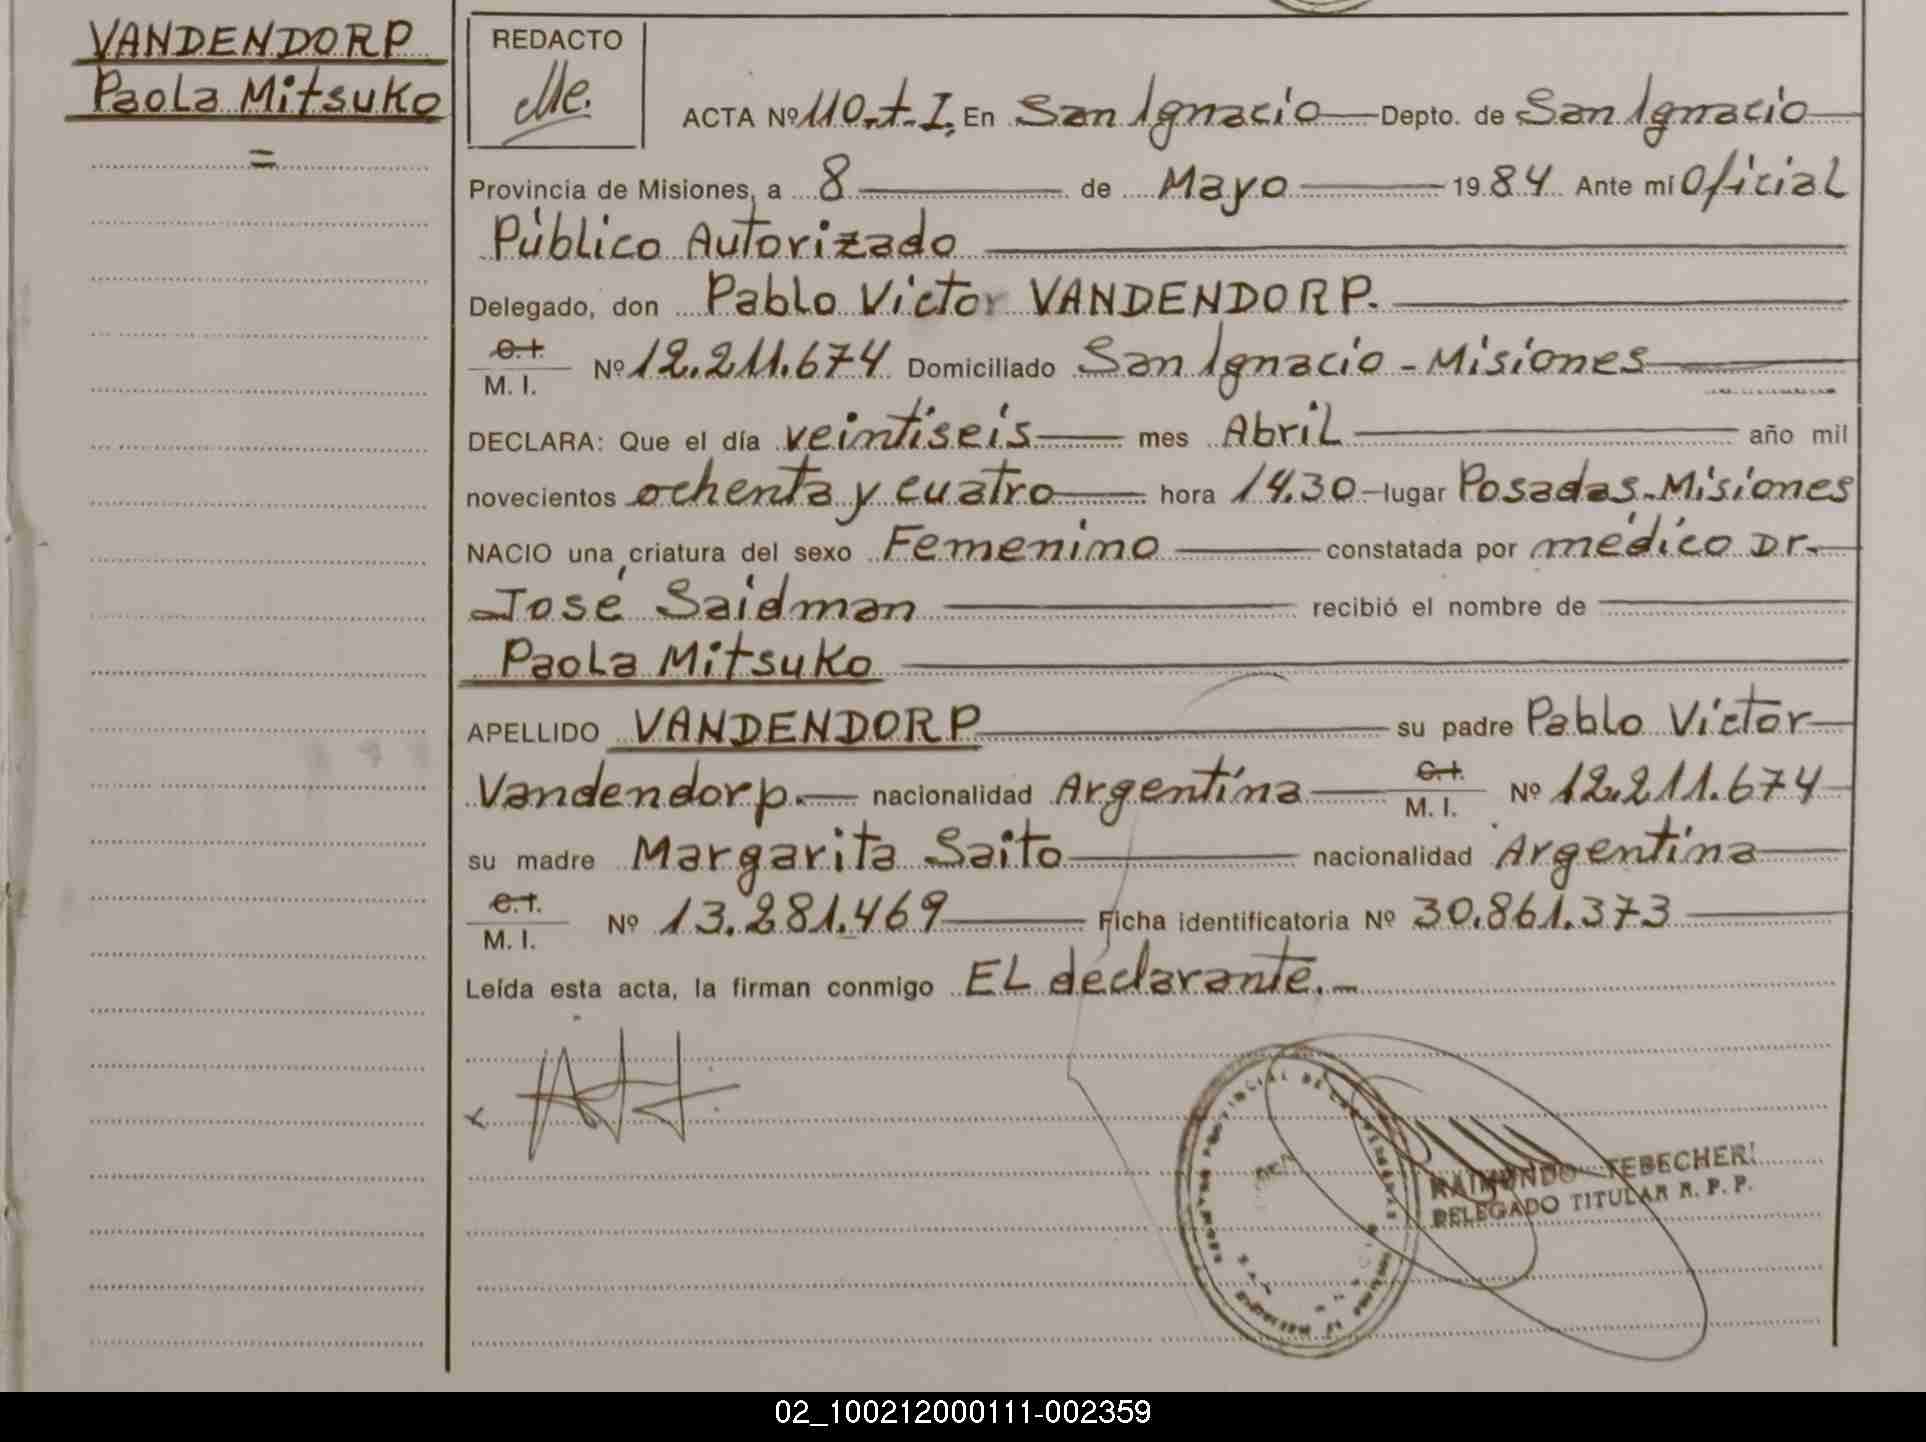 VANDENDORP
Paola Mitsuko
=
REDACTO
ACTA Nº 110-t-I, En San Ignacio Depto. de San Ignacio
Provincia de Misiones, a 8 de Mayo 1984 Ante mí Oficial
Público Autorizado
Delegado, don Pablo Victor VANDENDORP.
C.I.
M. I. Nº 12.211.674 Domiciliado San Ignacio - Misiones
DECLARA: Que el día veintiseis mes Abril año mil
novecientos ochenta y cuatro hora 14.30 lugar Posadas-Misiones
NACIO una criatura del sexo Femenino constatada por médico Dr.
José Saidman recibió el nombre de
Paola Mitsuko
APELLIDO VANDENDORP su padre Pablo Víctor
Vandendorp. nacionalidad Argentina C.I. M. I. Nº 12.211.674
su madre Margarita Saito nacionalidad Argentina
C.I. M. I. Nº 13.281.469 Ficha identificatoria Nº 30.861.373
Leída esta acta, la firman conmigo EL declarante.-
PROVINCIAL DE LAS PERSONAS
RAIMUNDO TEBECHERI
DELEGADO TITULAR R. P. P.
02_100212000111-002359